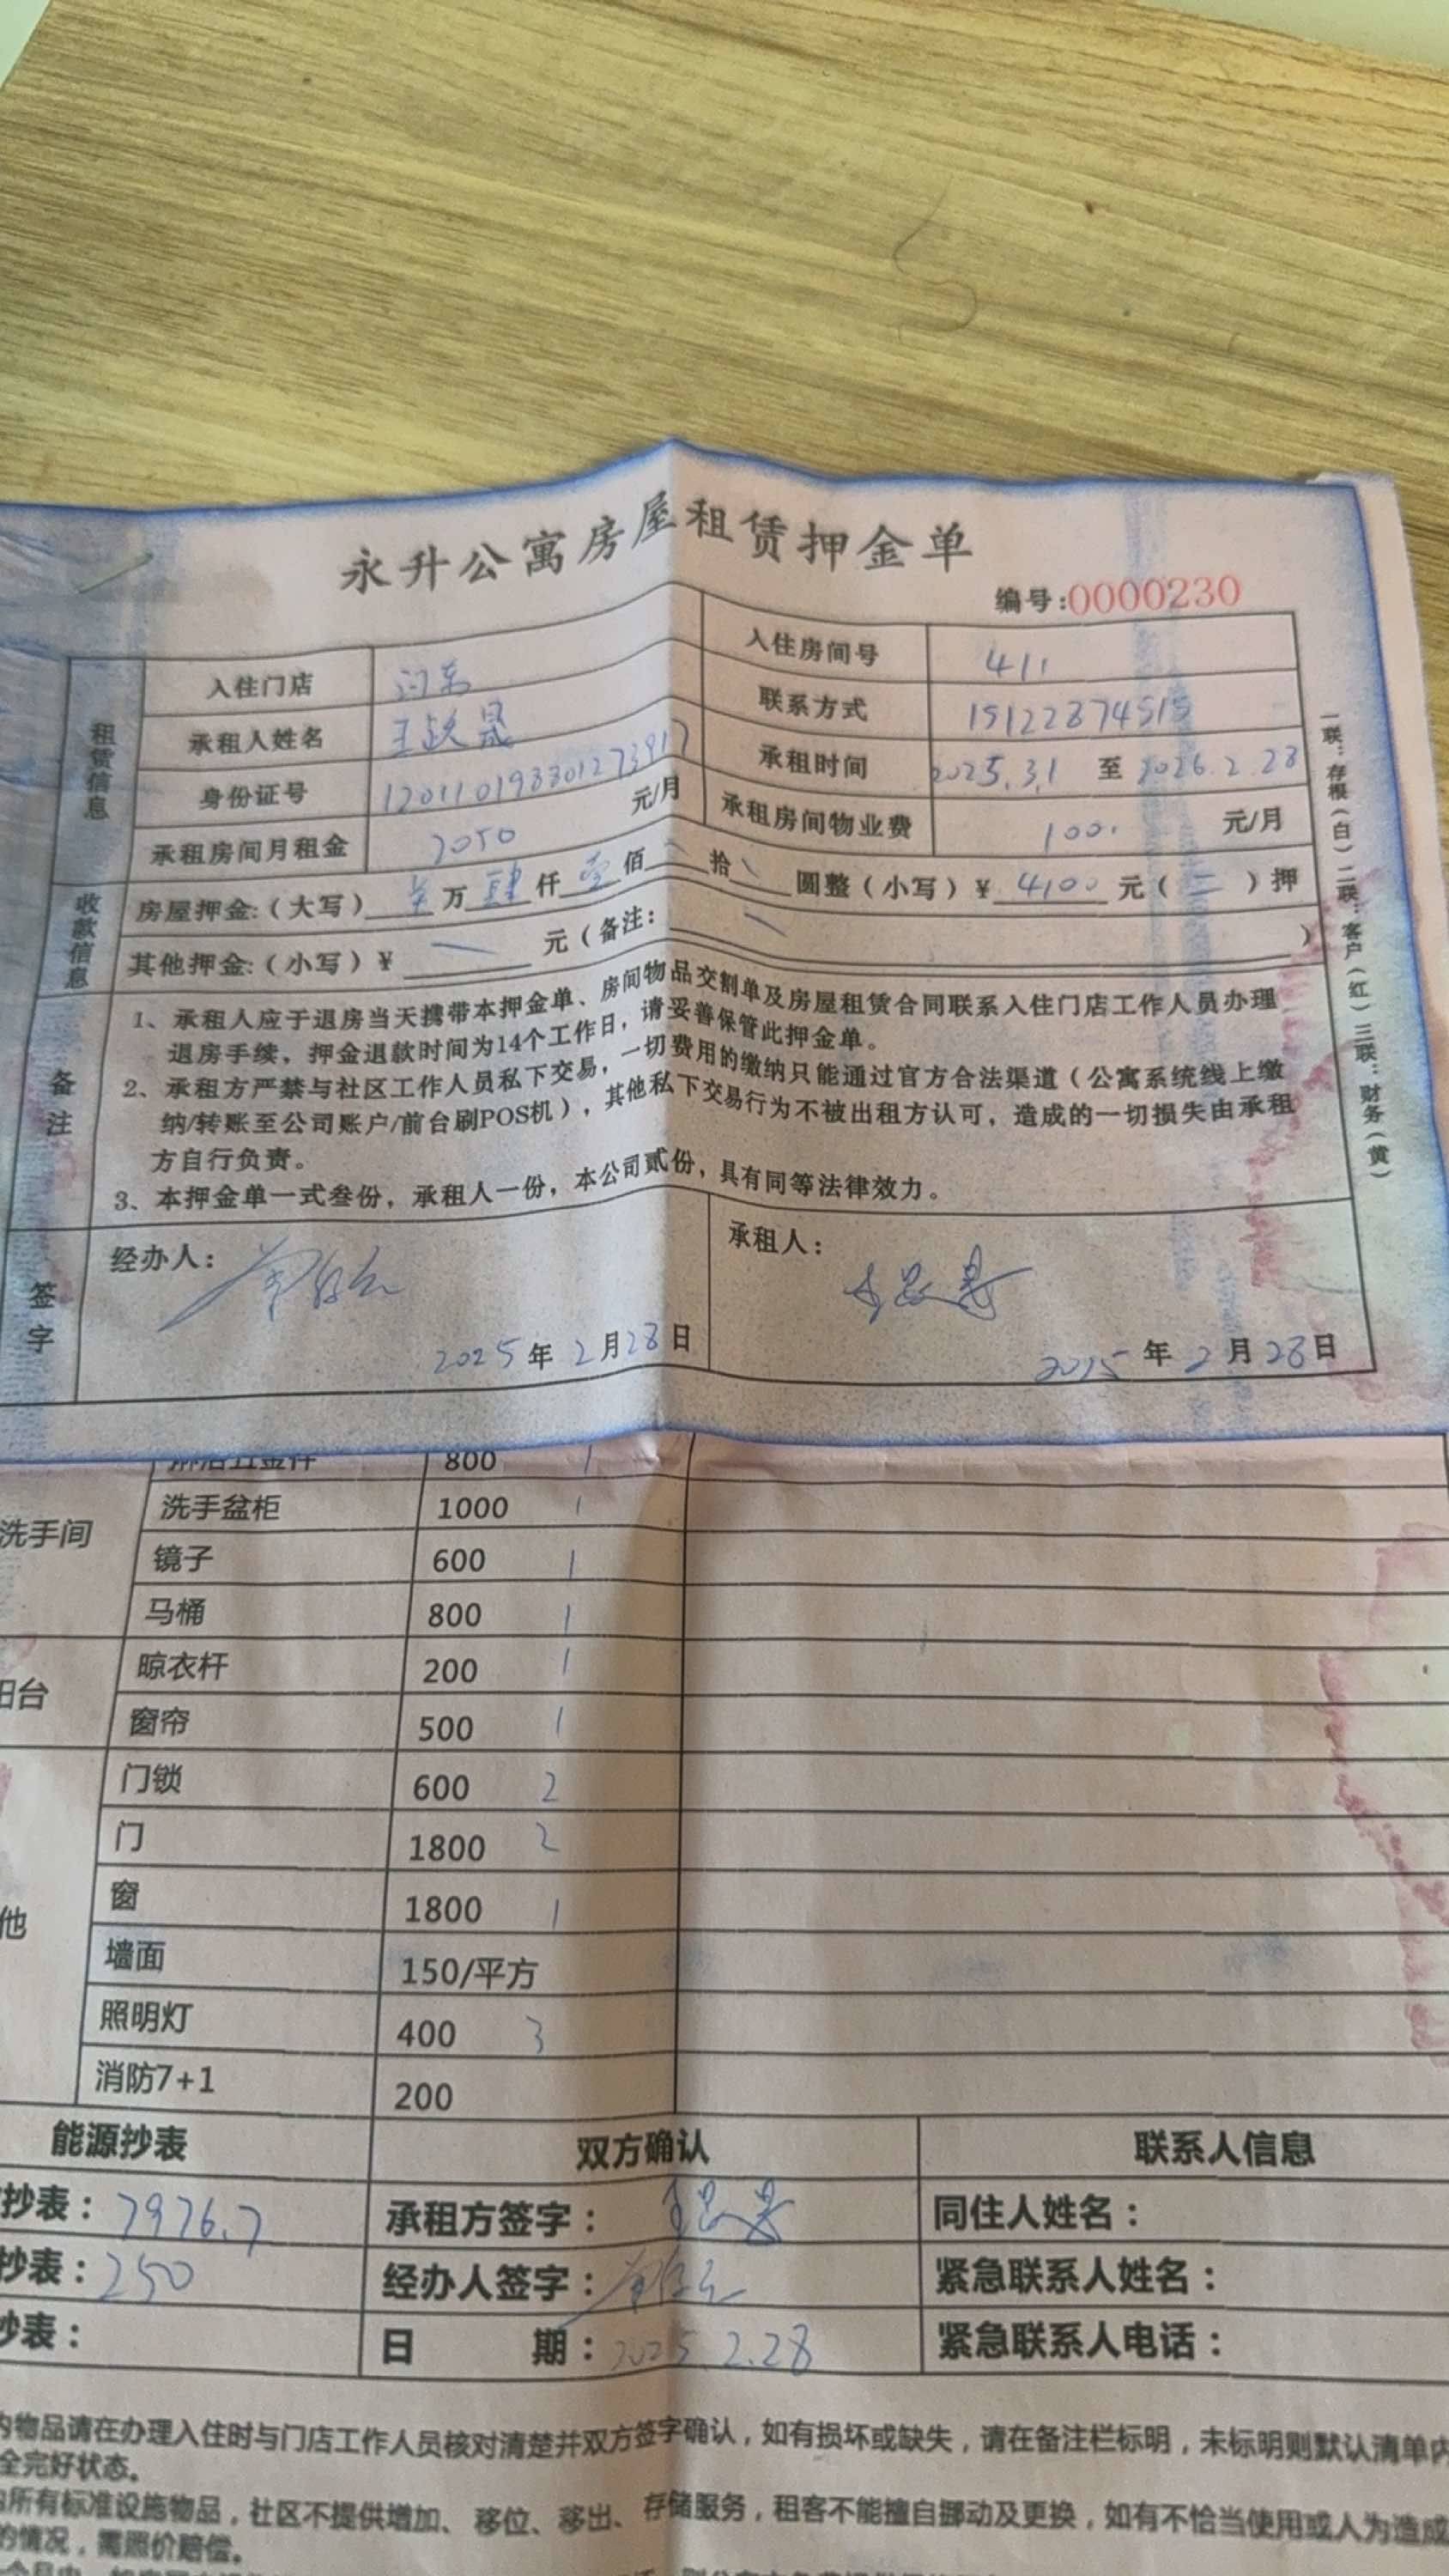 永升公寓房屋租赁押金单
编号:0000230
租赁信息
入住门店
入住房间号 411
承租人姓名 王跃晟
联系方式 15122874515
身份证号
承租时间 2025.3.1 至 2026.2.28
承租房间月租金 2050 元/月
承租房间物业费 100. 元/月
收款信息
房屋押金:(大写) 万 肆 仟 壹 佰 拾 圆整(小写)¥ 4100 元( 二 )押
其他押金:(小写)¥ 元(备注: )
备注
1、承租人应于退房当天携带本押金单、房间物品交割单及房屋租赁合同联系入住门店工作人员办理
退房手续，押金退款时间为14个工作日，请妥善保管此押金单。
2、承租方严禁与社区工作人员私下交易，一切费用的缴纳只能通过官方合法渠道（公寓系统线上缴
纳/转账至公司账户/前台刷POS机），其他私下交易行为不被出租方认可，造成的一切损失由承租
方自行负责。
3、本押金单一式叁份，承租人一份，本公司贰份，具有同等法律效力。
签字
经办人:
2025年2月28日
承租人:
2025年2月28日
一联：存根（白）二联：客户（红）三联：财务（黄）
800 1
洗手间
洗手盆柜 1000 1
镜子 600 1
马桶 800 1
阳台
晾衣杆 200 1
窗帘 500 1
他
门锁 600 2
门 1800 2
窗 1800 1
墙面 150/平方
照明灯 400 3
消防7+1 200
能源抄表 双方确认 联系人信息
抄表: 7976.7 承租方签字: 同住人姓名:
抄表: 250 经办人签字: 紧急联系人姓名:
抄表: 日 期: 2025.2.28 紧急联系人电话:
物品请在办理入住时与门店工作人员核对清楚并双方签字确认，如有损坏或缺失，请在备注栏标明，未标明则默认清单内
全完好状态。
所有标准设施物品，社区不提供增加、移位、移出、存储服务，租客不能擅自挪动及更换，如有不恰当使用或人为造成
的情况，需照价赔偿。